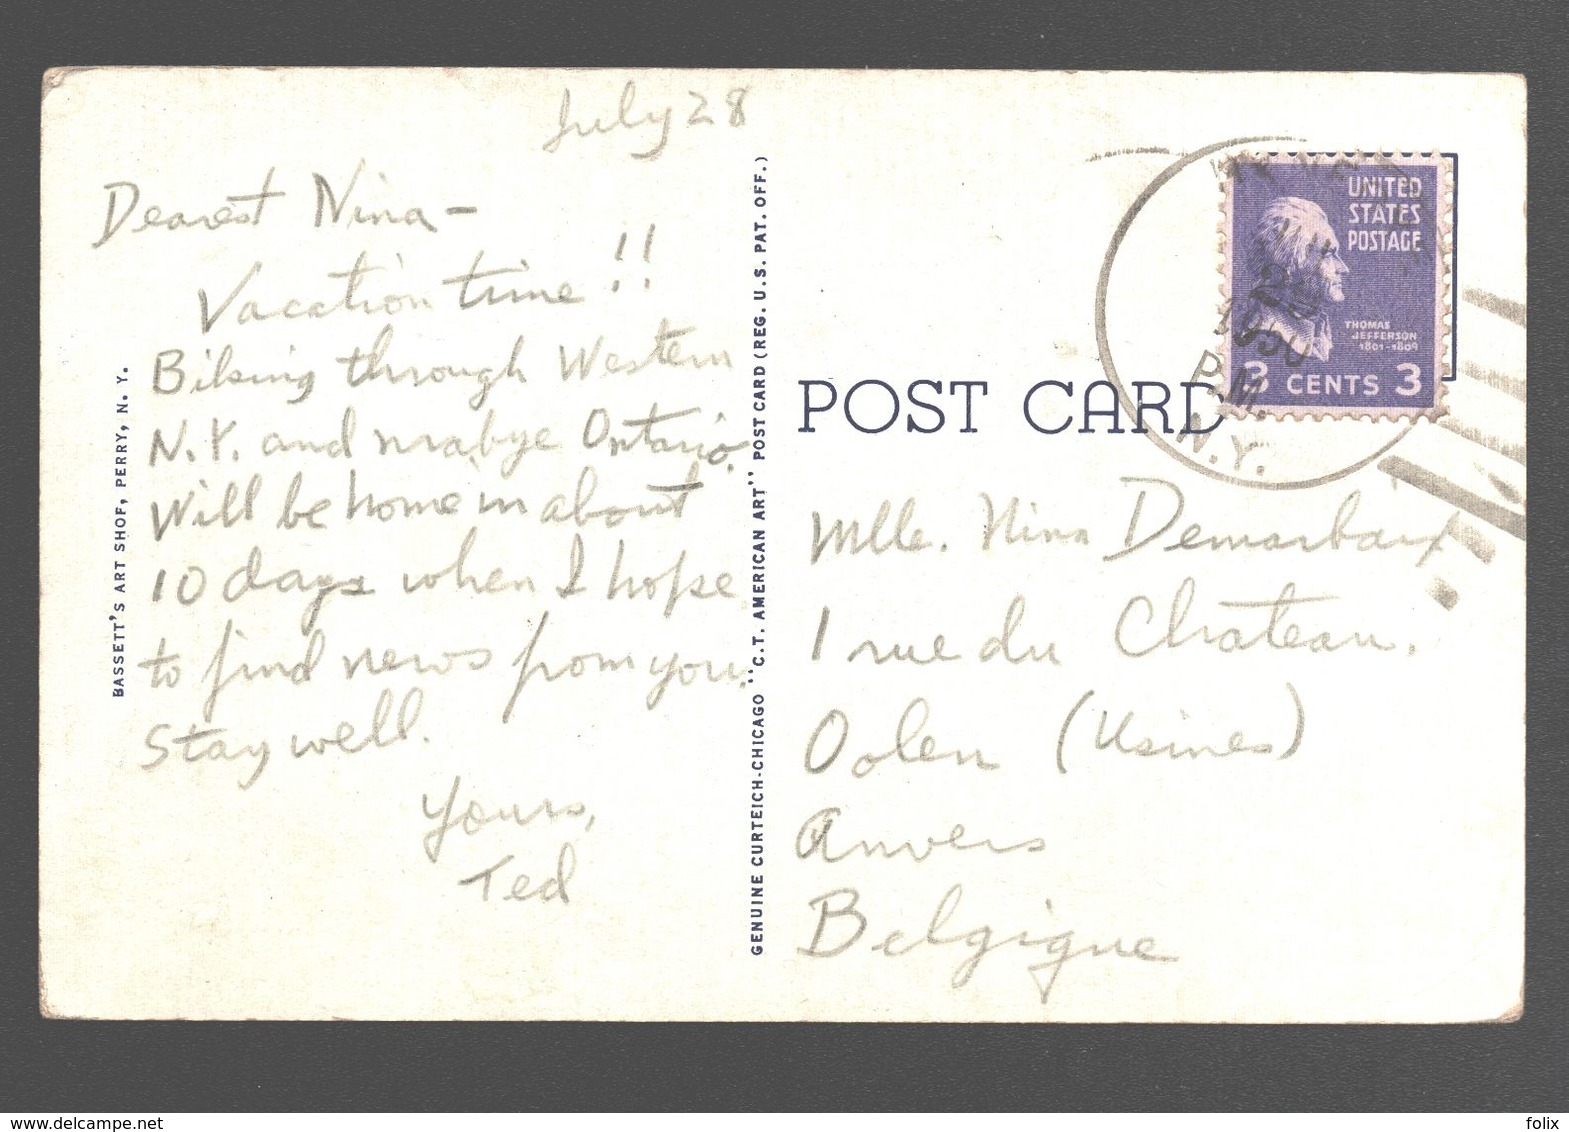 July 28
Dearest Nina -
Vacation time!!
Biking through Western
N.Y. and mabye Ontario.
Will be home in about
10 days when I hope
to find news from you.
Stay well.
Yours,
Ted
BASSETT'S ART SHOP, PERRY, N. Y.
GENUINE CURTEICH-CHICAGO "C.T. AMERICAN ART" POST CARD (REG. U.S. PAT. OFF.)
POST CARD
UNITED
STATES
POSTAGE
THOMAS
JEFFERSON
1801-1809
3 CENTS 3
1950
P.M.
N.Y.
Mlle. Nina Demarbaix
1 rue du Chateau.
Oolen (Usines)
Anvers
Belgique
delcampe.net
folix